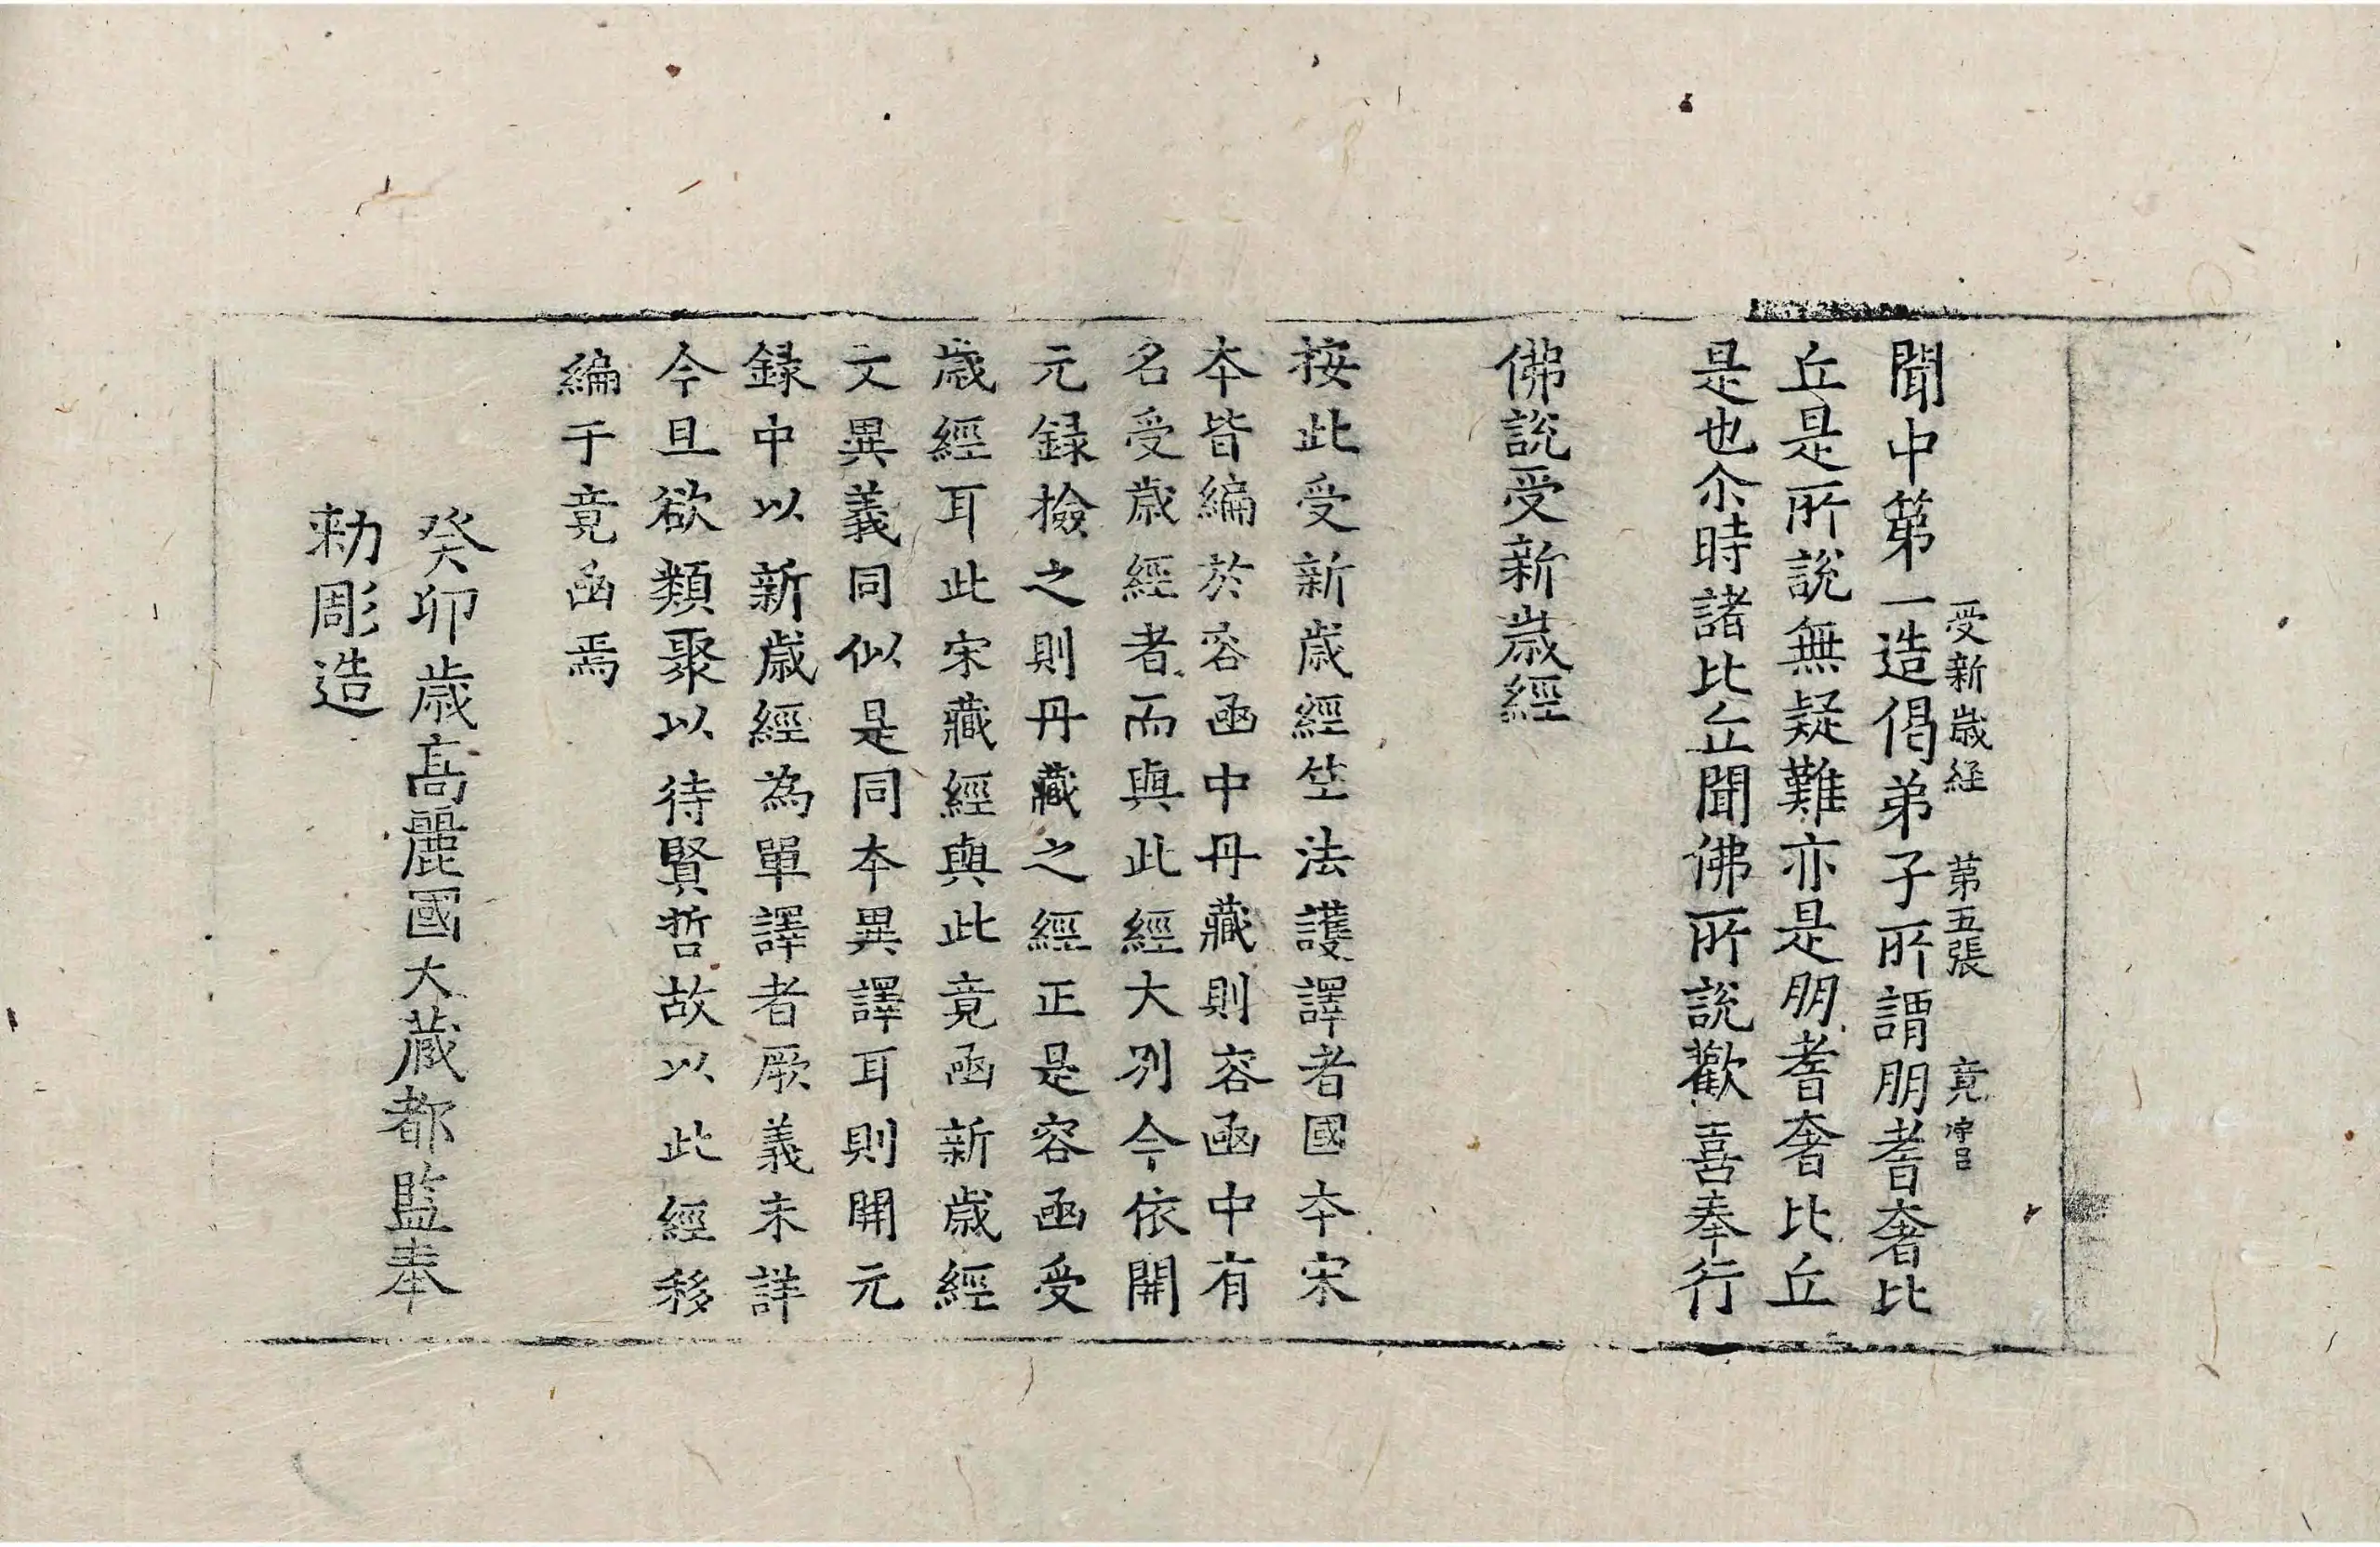 受新歲経 第五張 竟
聞中第一造偈弟子所謂朋耆奢比
丘是所說無疑難亦是朋耆奢比丘
是也尒時諸比丘聞佛所說歡喜奉行
佛說受新歲經
按此受新歲經竺法護譯者國本宋
本皆編於容函中丹藏則容函中有
名受歲經者而與此經大別今依開
元録撿之則丹藏之經正是容函受
歲經耳此宋藏經與此竟函新歲經
文異義同似是同本異譯耳則開元
録中以新歲經為單譯者厥義未詳
今且欲類聚以待賢哲故以此經移
編于竟函焉
癸卯歲高麗國大藏都監奉
勅彫造